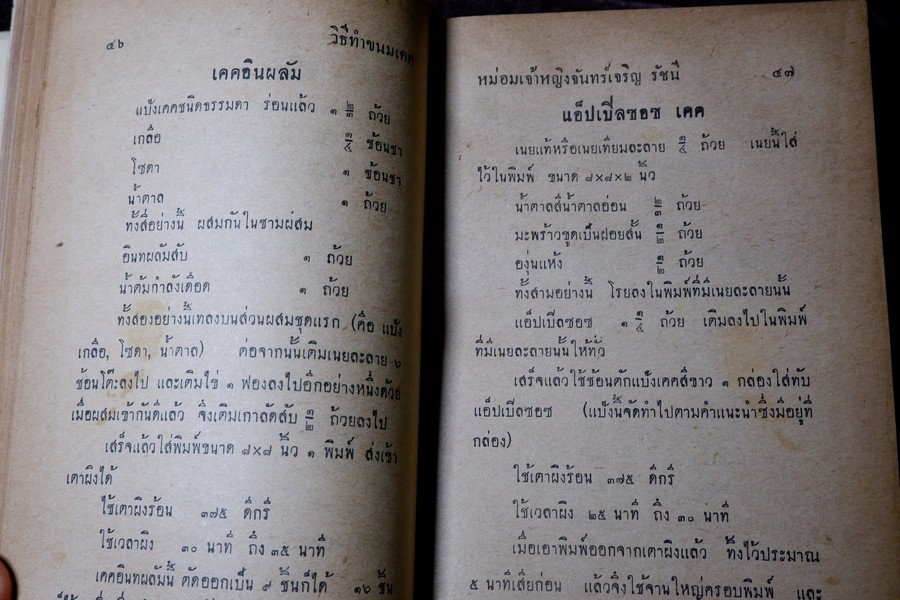 ๔๖
วิธีทำขนมเคค
เคคอินผลัม
แป้งเคคชนิดธรรมดา ร่อนแล้ว ๑ ๒/๓ ถ้วย
เกลือ ๑/๔ ช้อนชา
โซดา ๑ ช้อนชา
น้ำตาล ๑ ถ้วย
ทั้งสี่อย่างนี้ ผสมกันในชามผสม
อินทผลัมสับ ๑ ถ้วย
น้ำต้มกำลังเดือด ๑ ถ้วย
ทั้งสองอย่างนี้เทลงบนส่วนผสมชุดแรก (คือ แป้ง
เกลือ, โซดา, น้ำตาล) ต่อจากนั้นเติมเนยละลาย ๖
ช้อนโต๊ะลงไป และเติมไข่ ๑ ฟองลงไปอีกอย่างหนึ่งด้วย
เมื่อผสมเข้ากันดีแล้ว จึงเติมเกาลัดสับ ๑/๒ ถ้วยลงไป
เสร็จแล้วใส่พิมพ์ขนาด ๘×๘ นิ้ว ๑ พิมพ์ ส่งเข้า
เตาผิงได้
ใช้เตาผิงร้อน ๓๗๕ ดีกรี
ใช้เวลาผิง ๓๐ นาที ถึง ๓๕ นาที
เคคอินทผลัมนี้ ตัดออกเป็น ๙ ชิ้นก็ได้ ๑๖ ชิ้น
หม่อมเจ้าหญิงจันทร์เจริญ รัชนี
๔๗
แอ็ปเปิลซอซ เคค
เนยแท้หรือเนยเทียมละลาย ๑/๔ ถ้วย เนยนี้ใส่
ไว้ในพิมพ์ ขนาด ๘×๘×๒ นิ้ว
น้ำตาลสีน้ำตาลอ่อน ๒/๓ ถ้วย
มะพร้าวขูดเป็นฝอยสั้น ๑/๒ ถ้วย
องุ่นแห้ง ๑/๒ ถ้วย
ทั้งสามอย่างนี้ โรยลงในพิมพ์ที่มีเนยละลายนั้น
แอ็ปเปิลซอซ ๑ ๑/๔ ถ้วย เติมลงไปในพิมพ์
ที่มีเนยละลายนั้นให้ทั่ว
เสร็จแล้วใช้ช้อนตักแป้งเคคสีขาว ๑ กล่องใส่ทับ
แอ็ปเปิลซอซ (แป้งนี้จัดทำไปตามคำแนะนำซึ่งมีอยู่ที่
กล่อง)
ใช้เตาผิงร้อน ๓๗๕ ดีกรี
ใช้เวลาผิง ๒๕ นาที ถึง ๓๐ นาที
เมื่อเอาพิมพ์ออกจากเตาผิงแล้ว ทิ้งไว้ประมาณ
๕ นาทีเสียก่อน แล้วจึงใช้จานใหญ่ครอบพิมพ์ และ